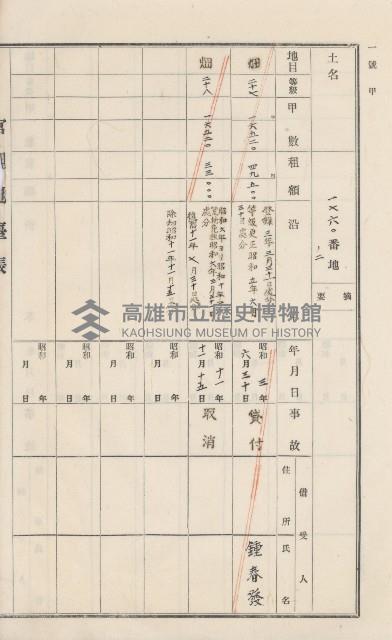 一號甲
土名
一七六〇番地ノ二
摘要
地目
等級
甲數
租額
沿
年月日
事故
借受人
住所
氏名
畑
二十七
一六五二〇
四九五〇〇
登錄 三年三月三十一日處分
等級更正昭和五年六月
三十日處分
昭和三年
六月三十日
貸付
鍾春發
畑
二十八
一六五二〇
三三〇〇〇
處分
除却昭和十一年十一月十五日
昭和十一年
十一月十五日
取消
昭和 年
月 日
昭和 年
月 日
昭和 年
月 日
昭和 年
月 日
高雄市立歷史博物館
KAOHSIUNG MUSEUM OF HISTORY